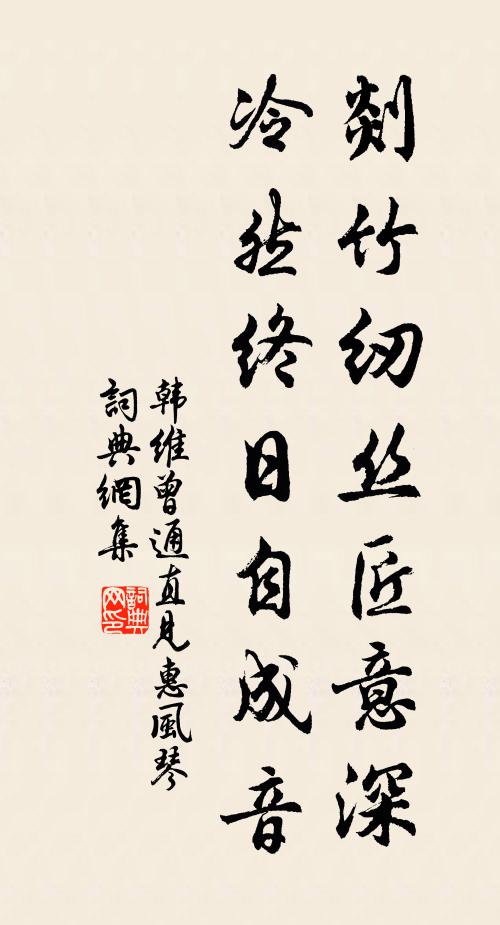 剡竹纫丝匠意深
冷然终日自成音
韩维曾通直見惠風琴
詞典網集
詞典網印